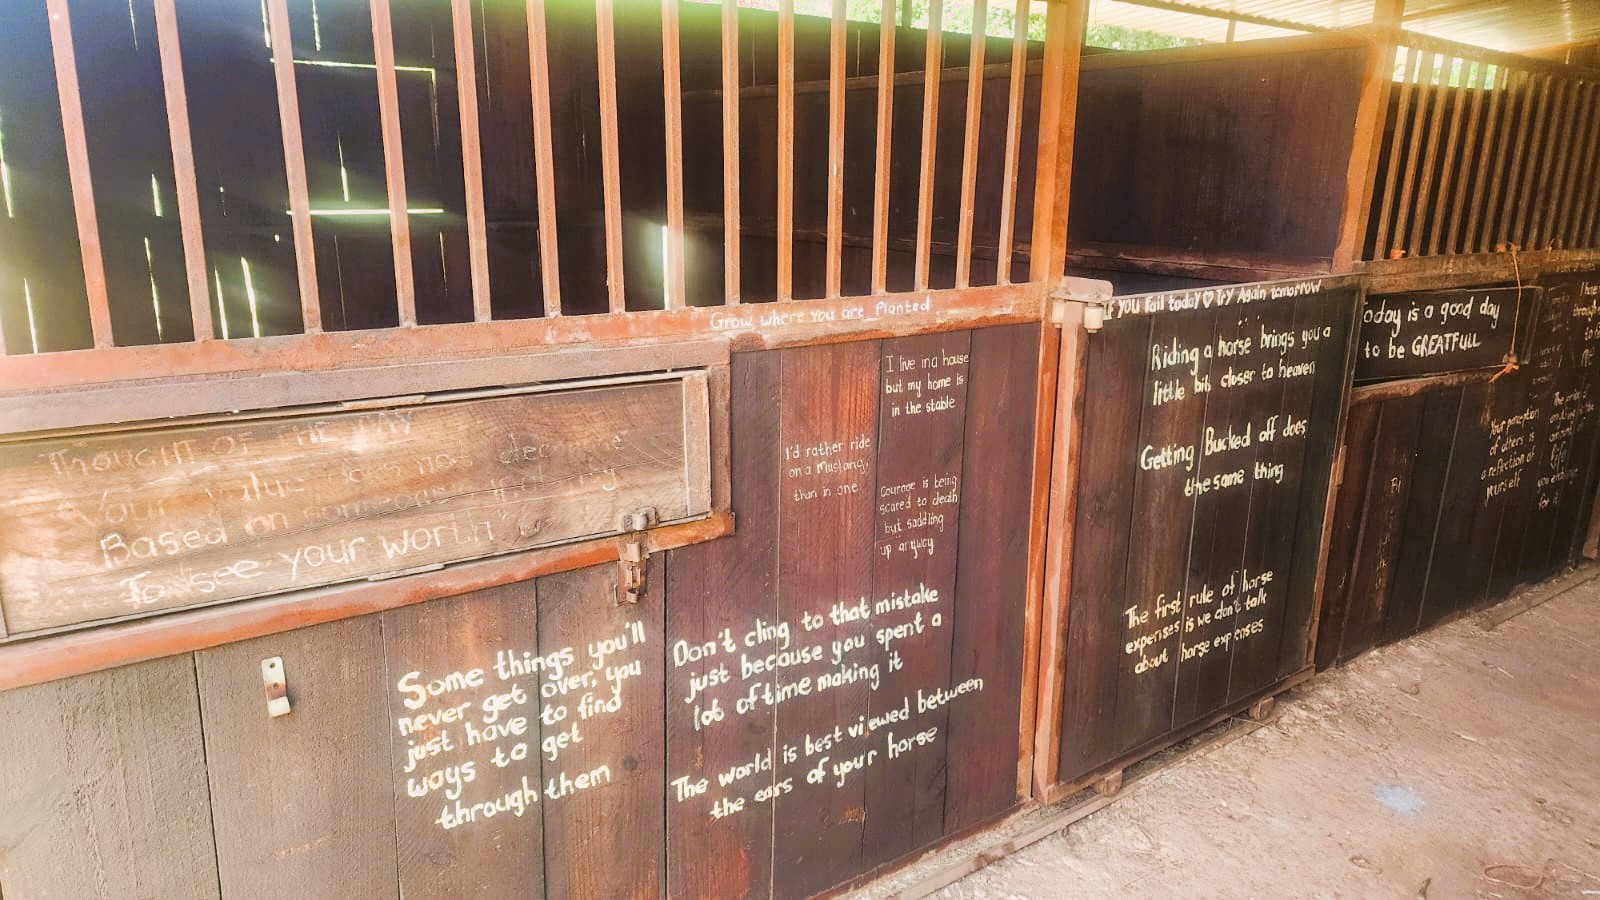 Grow where you are Planted
Thought OF THE DAY
Your value does not decrease
Based on someone
To see your worth"
Some things you'll
never get over, you
just have to find
ways to get
through them
I live in a house
but my home is
in the stable
I'd rather ride
on a Mustang,
than in one
Courage is being
scared to death
but saddling
up anyway
Don't cling to that mistake
just because you spent a
lot of time making it
The world is best viewed between
the ears of your horse
IF YOU Fail today ♡ Try Again tomorrow
Riding a horse brings you a
little bit closer to heaven
Getting Bucked off does
the same thing
The first rule of horse
expenses is we don't talk
about horse expenses
oday is a good day
to be GREATFULL
Your perception
of others is
a reflection of
yourself
I have